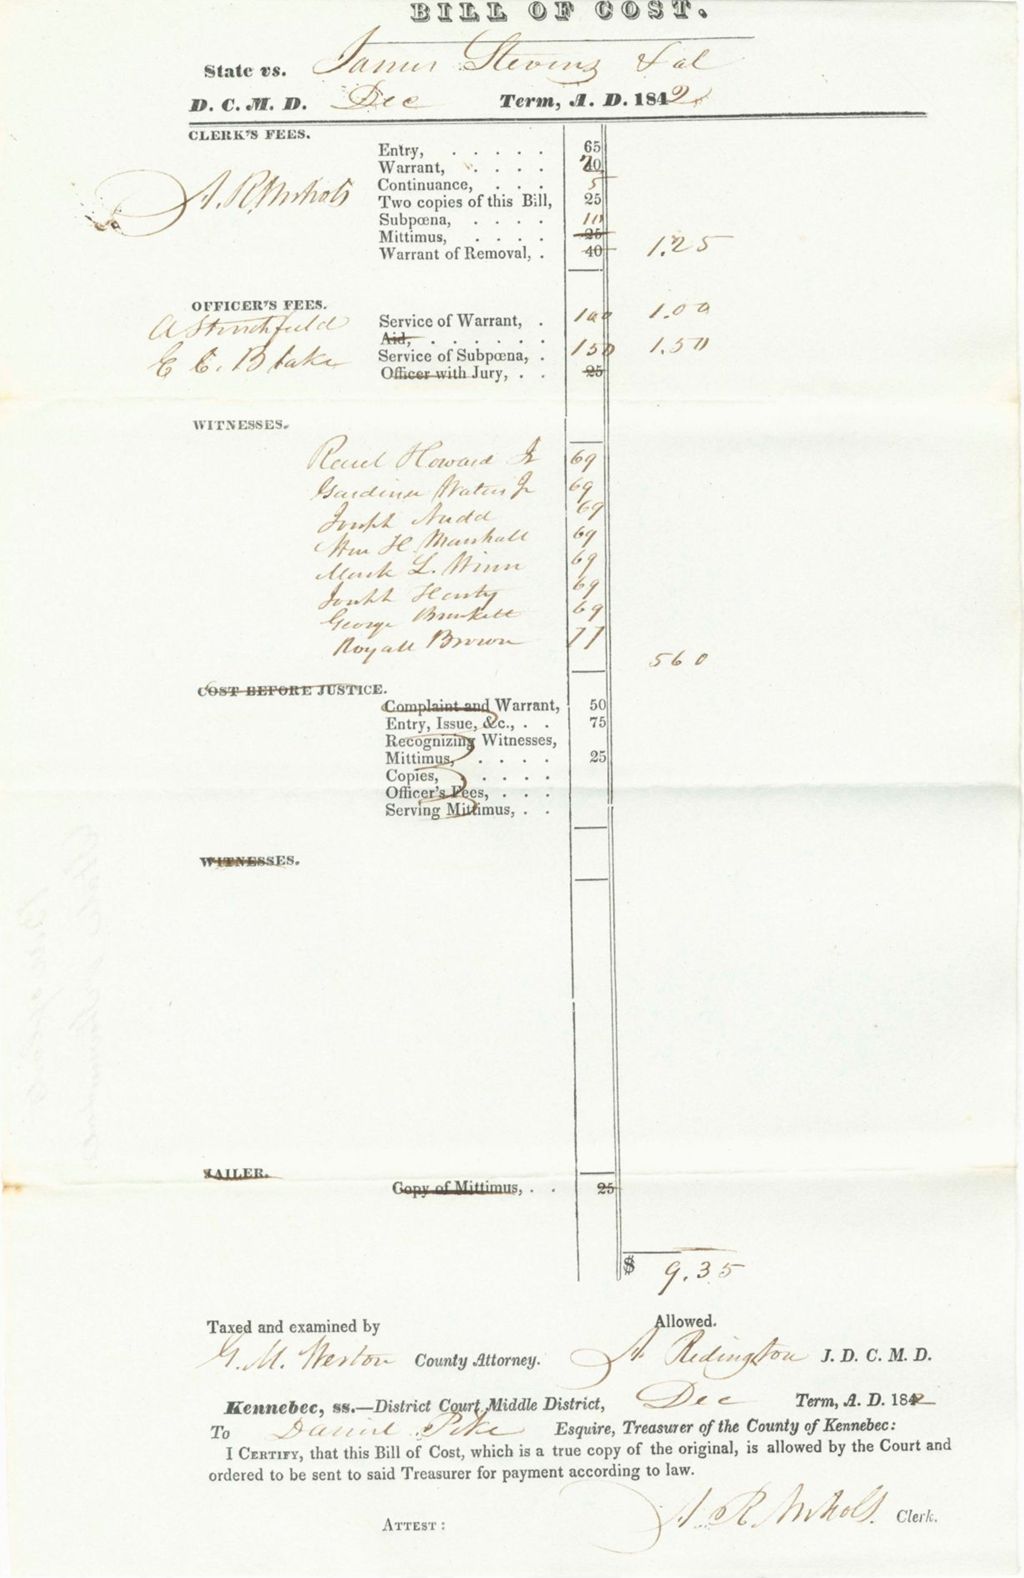 BILL OF COST.
State vs. James Stevens & al
D. C. M. D. Dec Term, A. D. 1842
CLERK'S FEES.
Entry, . . . . . 65
Warrant, . . . . 20
Continuance, . . . 5
A. R. Nichols Two copies of this Bill, 25
Subpœna, . . . . 10
Mittimus, . . . . 25
Warrant of Removal, . 40 1.25
OFFICER'S FEES.
A Stinchfield Service of Warrant, . 100 1.00
Aid, . . . . . .
E. C. Blake Service of Subpœna, . 150 1.50
Officer with Jury, . . 25
WITNESSES.
Howard Jr 69
Gardiner Waters Jr 69
Joseph Nudd 69
Wm H. Marshall 69
Mark L. Winn 69
Joseph 69
George 69
Royall Brown 77
560
COST BEFORE JUSTICE.
Complaint and Warrant, 50
Entry, Issue, &c., . . 75
Recognizing Witnesses,
Mittimus, . . . . 25
Copies, . . . .
Officer's Fees, . . .
Serving Mittimus, . .
WITNESSES.
JAILER.
Copy of Mittimus, . . 25
$ 9.35
Taxed and examined by Allowed.
G. M. Weston County Attorney. A. Redington J. D. C. M. D.
Kennebec, ss.—District Court Middle District, Dec Term, A. D. 1842
To Daniel Pike Esquire, Treasurer of the County of Kennebec:
I CERTIFY, that this Bill of Cost, which is a true copy of the original, is allowed by the Court and
ordered to be sent to said Treasurer for payment according to law.
ATTEST: A. R. Nichols. Clerk.